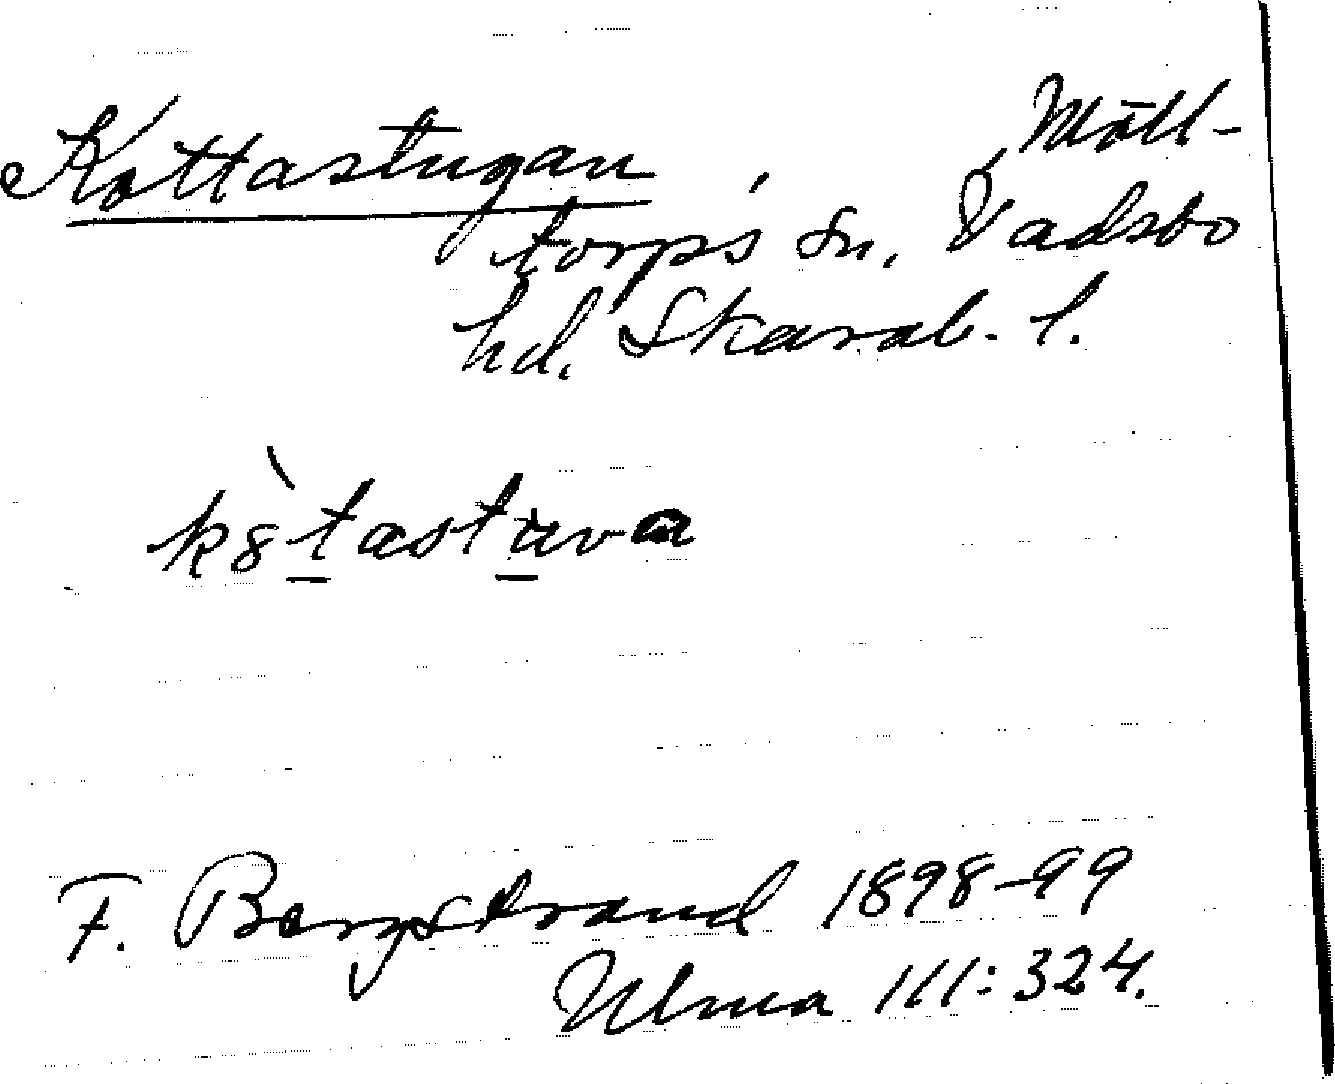 Kottastugan, Möll-
torps sn. Vadsbo
hd. Skarab. l.
k8̀tastuva
F. Bergstrand 1898-99
Ulma 111:324.